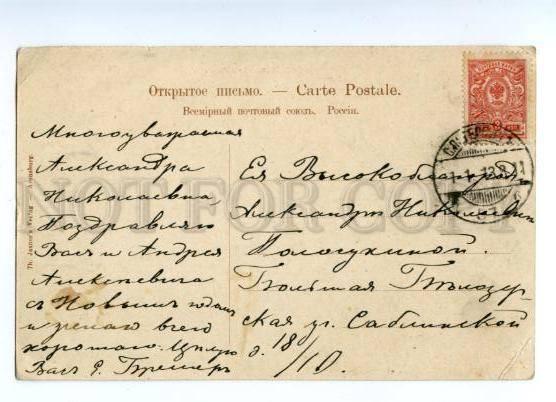 Открытое письмо. — Carte Postale.
Всемірный почтовый союзъ. Россія.
Многоуважаемая
Александра
Николаевна,
Поздравляю
Васъ и Андрея
Алексѣевича
съ Новымъ годомъ
и желаю всего
хорошаго. Цѣлую
Васъ
Ея Высокоблагородію
Александрѣ Николаевнѣ
Большая Бѣлозер-
ская уг. Саблинской
д. 18/10.
NOT FOR COPY